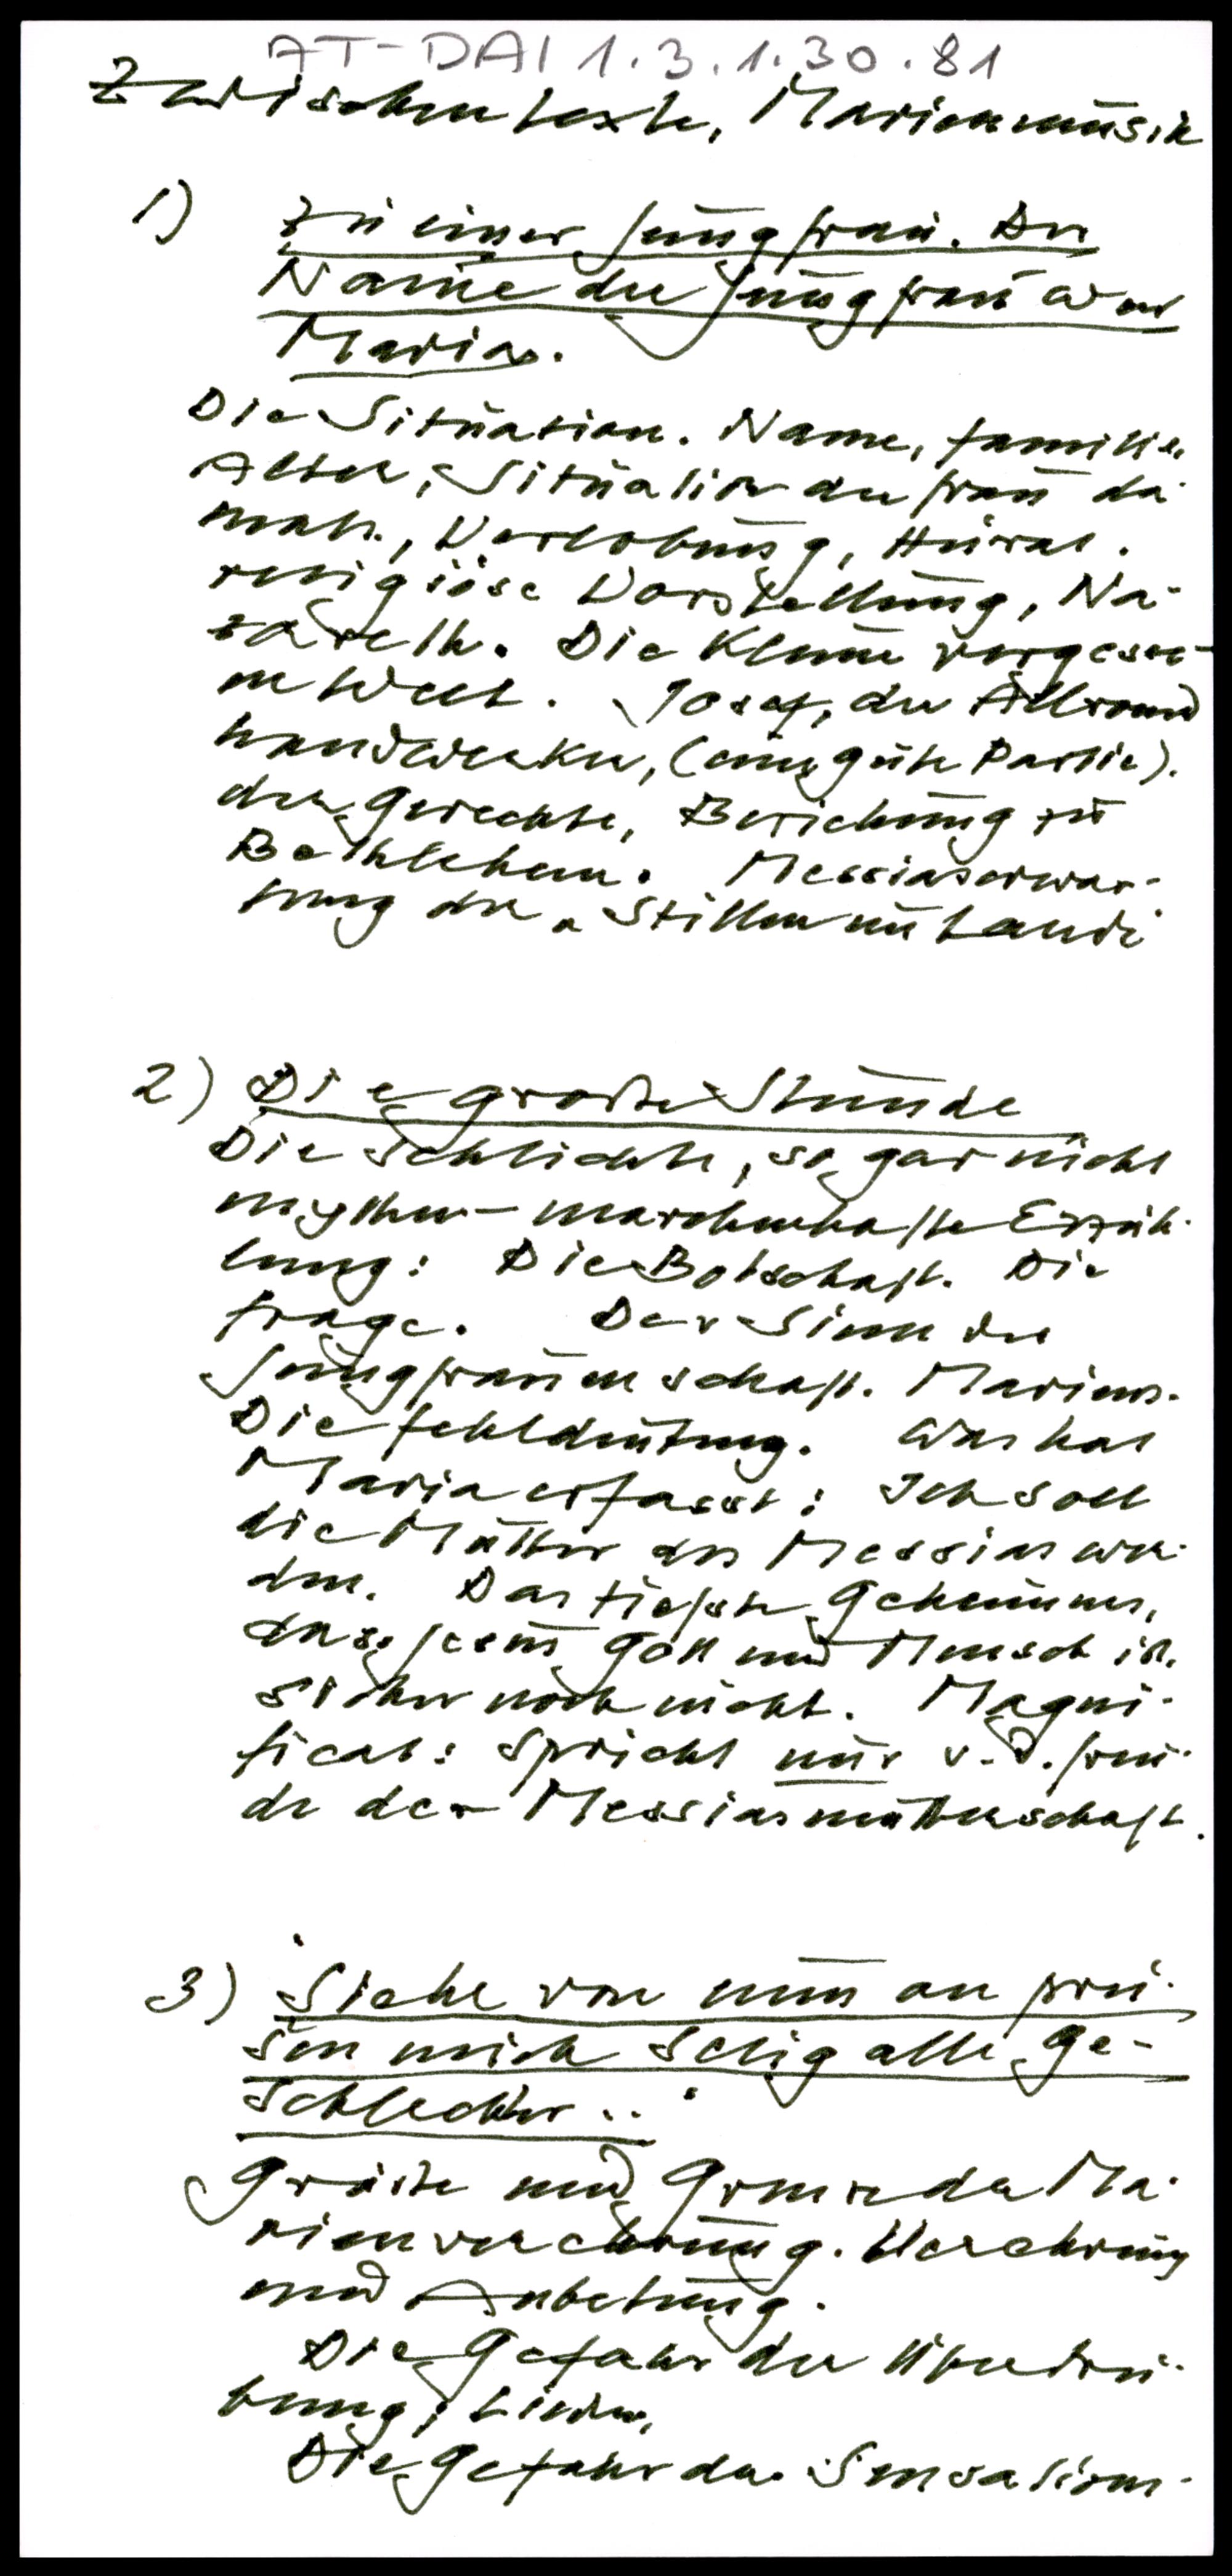 AT-DAI 1.3.1.30.81
Zwischentexte, Marienmusik
1) Zu einer Jungfrau. Der
Name der Jungfrau war
Maria.
Die Situation. Name, Familie,
Alter, Situation der Frau da-
mals, Verlobung, Heirat.
religiöse Vorstellung, Na-
zareth. Die kleine vergesse-
ne Welt. Josef, der Allround
handwerker, (eine gute Partie).
der Gerechte, Beziehung zu
Bethlehem. Messiaserwar-
tung der "Stillen im Lande
2) Die große Stunde
Die schlichte, so gar nicht
mythen-märchenhafte Erzäh-
lung: Die Botschaft. Die
Frage. Der Sinn der
Jungfrauenschaft. Mariens.
Die Fehldeutung. Was hat
Maria erfasst: Ich soll
die Mutter des Messias wer-
den. Das tiefste Geheimnis,
dass Jesus Gott und Mensch ist,
sicher noch nicht. Magni-
ficat: spricht nur v. d. Freu-
de der Messiasmutterschaft.
3) "Siehe von nun an prei-
sen mich selig alle Ge-
schlechter .."
Größe und Grenze der Ma-
rienverehrung. Verehrung
und Anbetung.
Die Gefahr der Übertrei-
bung, Lieder,
Die Gefahr der Sensations-